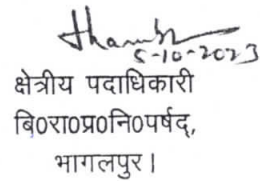 5-10-2023
क्षेत्रीय पदाधिकारी
बि0रा0प्र0नि0पर्षद्,
भागलपुर।